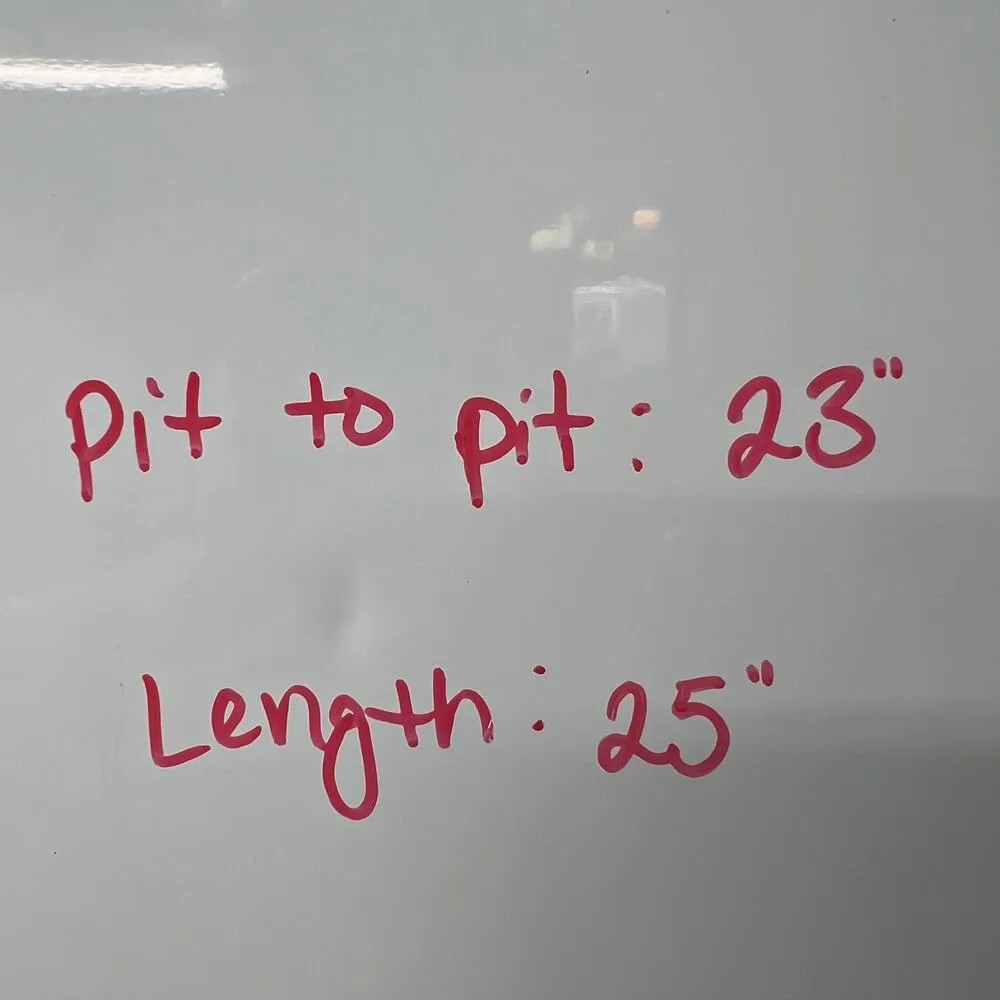 Pit to pit: 23"
Length: 25"